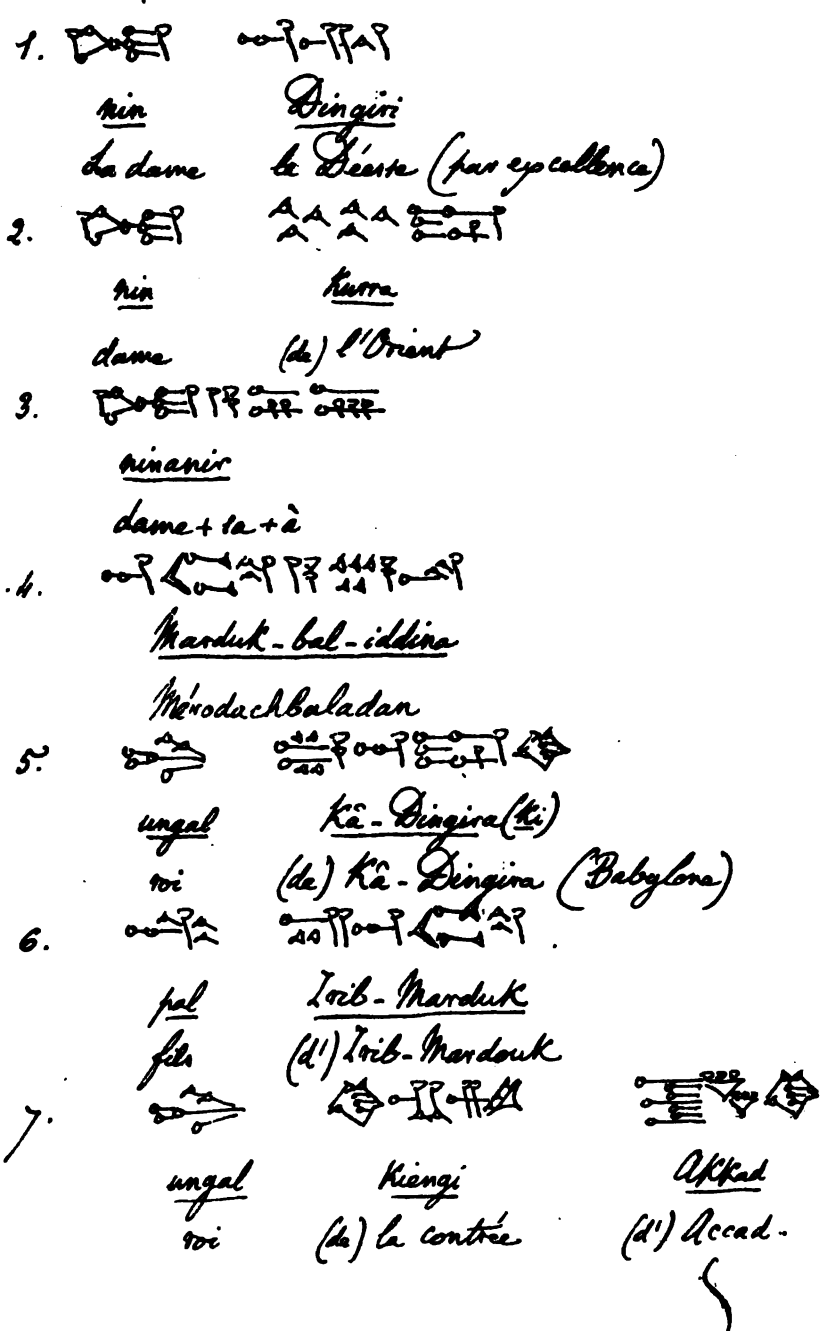 1.
nin Dingiri
La dame la Déesse (par excellence)
2.
nin Kurra
dame (de) l'Orient
3.
ninanir
dame + sa + à
4.
Marduk-bal-iddina
Mérodachbaladan
5.
ungal Kâ-Dingira (Ki)
roi (de) Kâ-Dingira (Babylone)
6.
pal Irib-Marduk
fils (d') Irib-Mardouk
7.
ungal Kiengi Akkad
roi (de) la contrée (d') Accad.